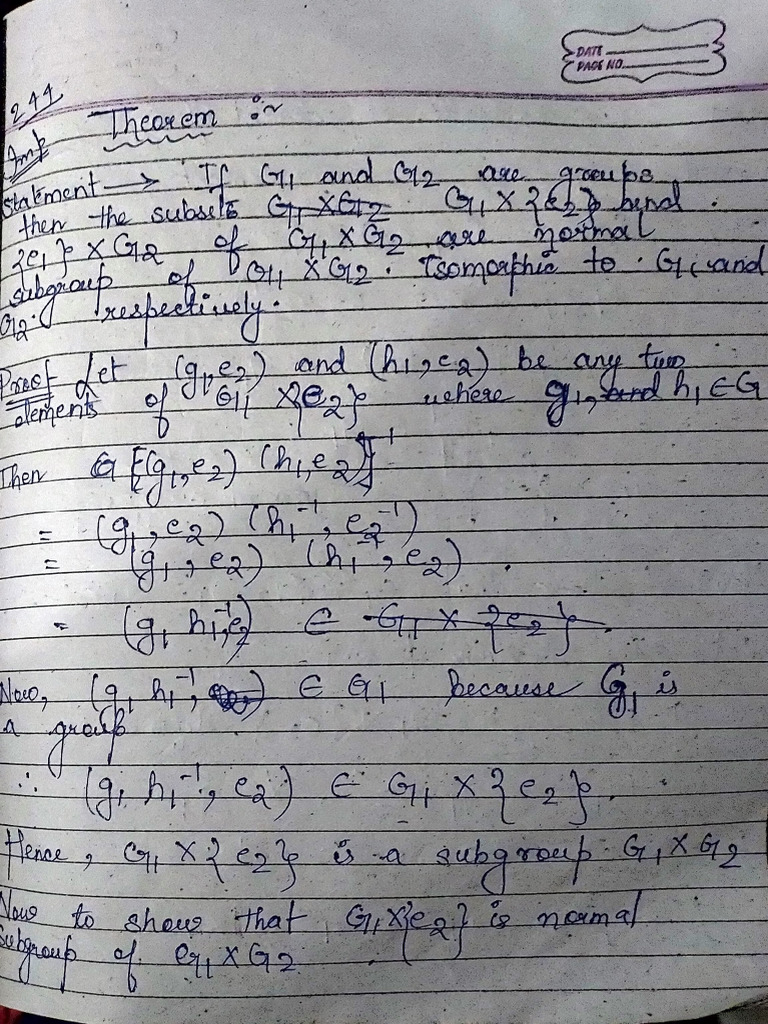 DATE
PAGE NO.
244
Imp Theorem :~
Statement → If G1 and G2 are groups
then the subsets G1 × {e2} and
{e1} × G2 of G1 × G2 are normal
subgroup of G1 × G2. Isomorphic to G1 and
G2. respectively.
Proof Let (g1, e2) and (h1, e2) be any two
elements of G1 × {e2} where g1, h1 ∈ G
Then [(g1, e2) (h1, e2)]⁻¹
= (g1, e2) (h1⁻¹, e2⁻¹)
= (g1, e2) (h1⁻¹, e2).
= (g1 h1⁻¹, e2) ∈ G1 × {e2}.
Now, (g1 h1⁻¹, ) ∈ G1 because G1 is
a group
∴ (g1 h1⁻¹, e2) ∈ G1 × {e2}.
Hence, G1 × {e2} is a subgroup G1 × G2
Now to show that G1 × {e2} is normal
subgroup of G1 × G2